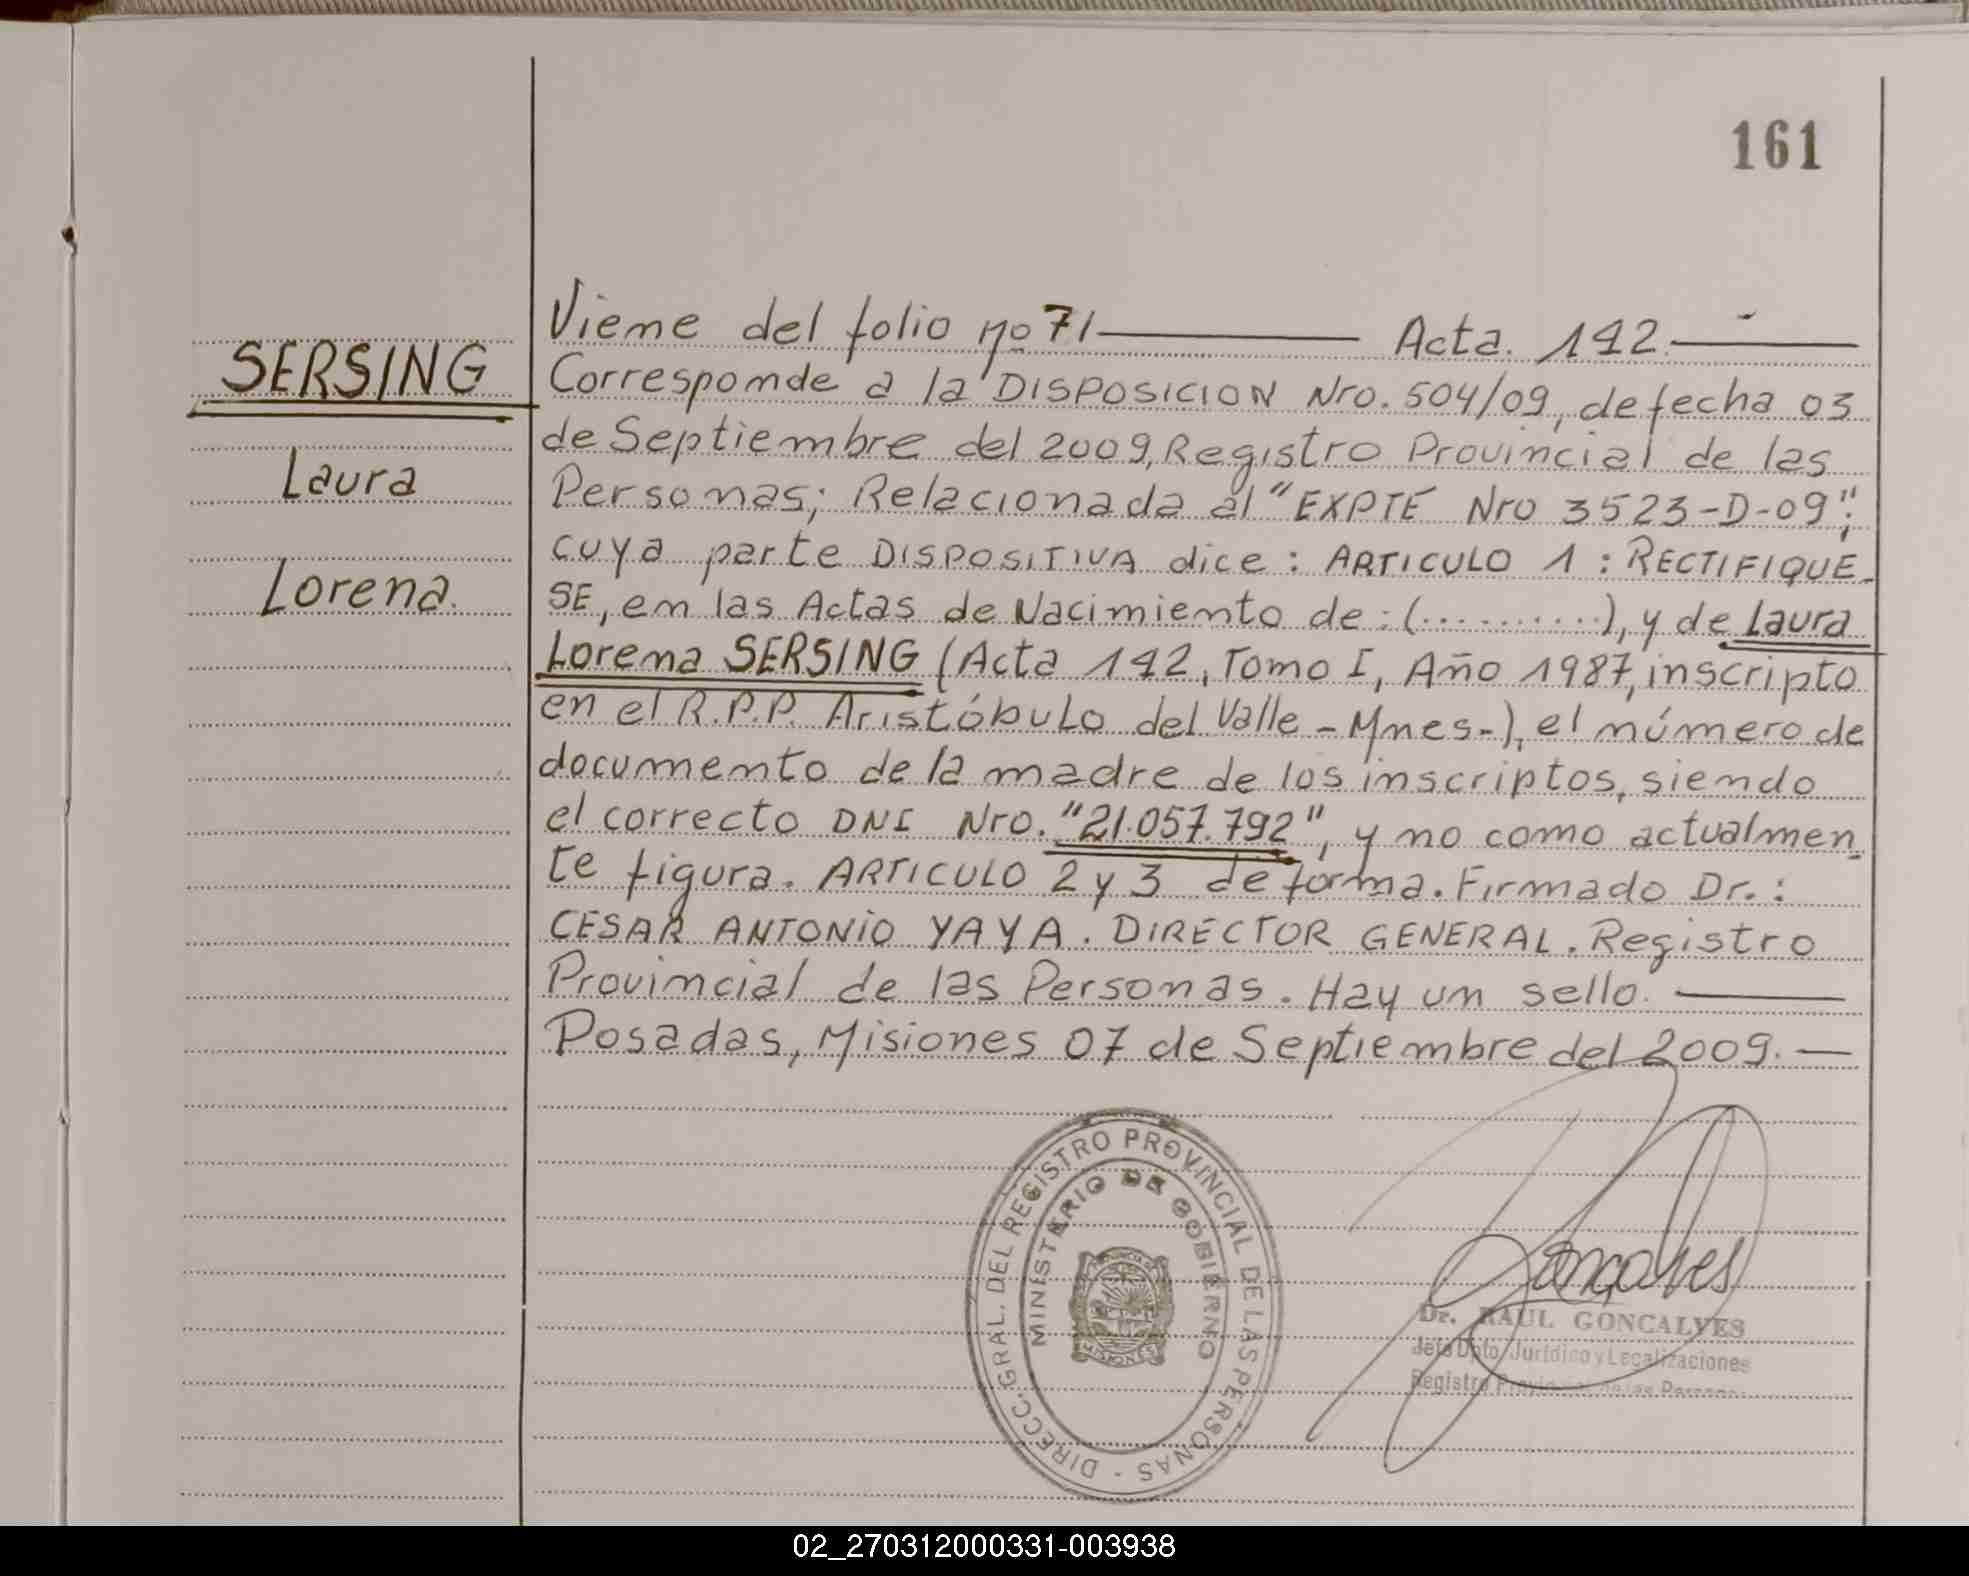 161
SERSING
Laura
Lorena.
Viene del folio nº 71 ——— Acta. 142. ———
Corresponde a la DISPOSICION Nro. 504/09, de fecha 03
de Septiembre del 2009, Registro Provincial de las
Personas; Relacionada al "EXPTE Nro 3523-D-09";
cuya parte DISPOSITIVA dice: ARTICULO 1: RECTIFIQUE-
SE, en las Actas de Nacimiento de: (..........), y de Laura
Lorena SERSING (Acta 142, Tomo I, Año 1987, inscripto
en el R.P.P. Aristóbulo del Valle - Mnes-), el número de
documento de la madre de los inscriptos, siendo
el correcto DNI Nro. "21.057.792", y no como actualmen-
te figura. ARTICULO 2 y 3 de forma. Firmado Dr.:
CESAR ANTONIO YAYA. DIRECTOR GENERAL. Registro
Provincial de las Personas. Hay un sello. ———
Posadas, Misiones 07 de Septiembre del 2009. —
DIRECC. GRAL. DEL REGISTRO PROVINCIAL DE LAS PERSONAS -
MINISTERIO DE GOBIERNO
MISIONES
Goncalves
Dr. RAUL GONCALVES
Jefe Dpto. Jurídico y Legalizaciones
Registro Provincial de las Personas
02_270312000331-003938